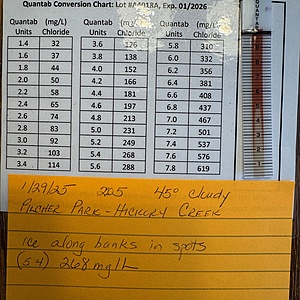 Quantab Conversion Chart: Lot #A4018A, Exp. 01/2026
Quantab Units (mg/L) Chloride Quantab Units (mg/L) Chloride Quantab Units (mg/L) Chloride
1.4 32 3.6 126 5.8 310
1.6 37 3.8 138 6.0 332
1.8 44 4.0 152 6.2 356
2.0 50 4.2 166 6.4 381
2.2 58 4.4 181 6.6 408
2.4 65 4.6 197 6.8 437
2.6 74 4.8 213 7.0 467
2.8 83 5.0 231 7.2 501
3.0 92 5.2 249 7.4 537
3.2 103 5.4 268 7.6 576
3.4 114 5.6 288 7.8 619
1/29/25 205 45° cloudy
PILCHER PARK - HICKORY CREEK
Ice along banks in spots
(5.4) 268 mg/L